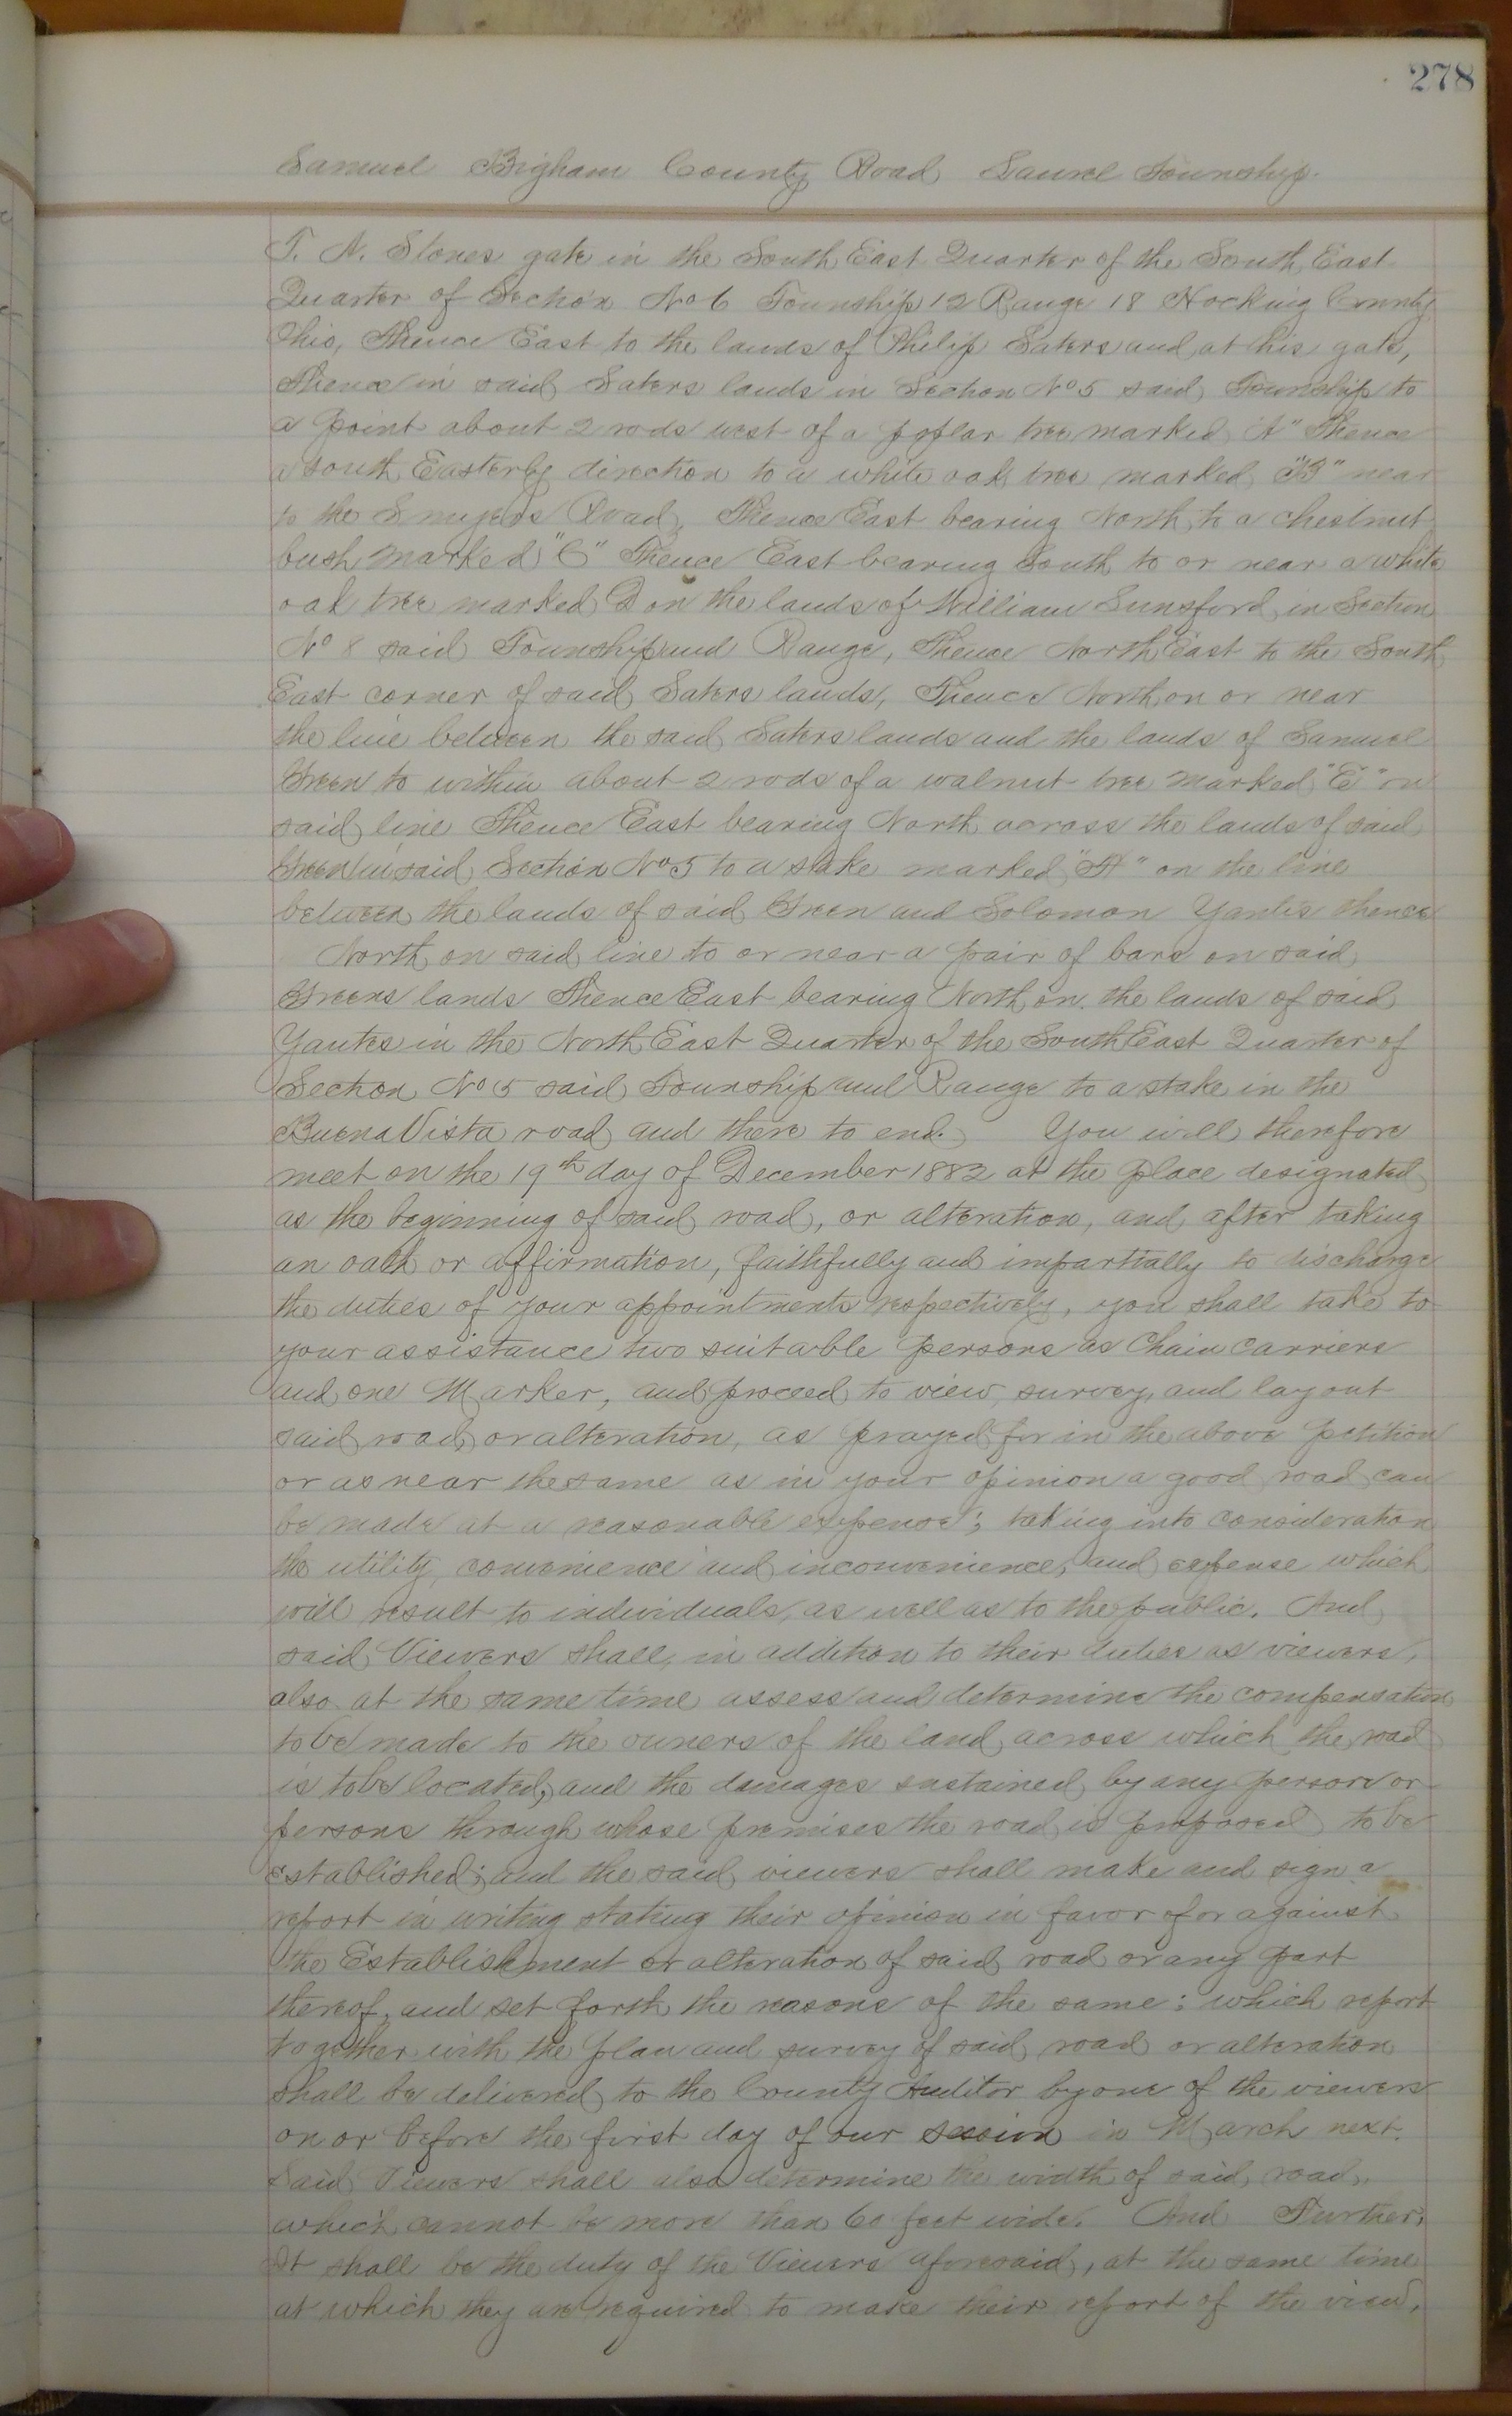 278
Samuel Bigham County Road Laurel Township.
T. N. Stones gate in the South East Quarter of the South East
Quarter of Section No 6 Township 12 Range 18 Hocking County
Ohio, Thence East to the lands of Philip Saters and at his gate,
Thence in said Saters lands in Section No 5 said Township to
a point about 2 rods west of a poplar tree marked "A" Thence
a south Easterly direction to a white oak tree marked "B" near
to the Road, Thence East bearing North to a chestnut
bush marked "C" Thence East bearing South to or near a white
oak tree marked D on the lands of William Lunsford in Section
No 8 said Township and Range, Thence North East to the South
East corner of said Saters lands, Thence North on or near
the line between the said Saters lands and the lands of Samuel
Green to within about 2 rods of a walnut tree marked "E" on
said line Thence East bearing North across the lands of said
Green in said Section No 5 to a stake marked on the line
between the lands of said Green and Solomon Yantis thence
North on said line to or near a pair of bars on said
Greens lands Thence East bearing North on the lands of said
Yantes in the North East Quarter of the South East Quarter of
Section No 5 said Township and Range to a stake in the
Buena Vista road and there to end. You will therefore
meet on the 19th day of December 1882 at the place designated
as the beginning of said road, or alteration, and after taking
an oath or affirmation, faithfully and impartially to discharge
the duties of your appointments respectively, you shall take to
your assistance two suitable persons as Chain Carriers
and one Marker, and proceed to view, survey, and lay out
said road or alteration, as prayed for in the above petition
or as near the same as in your opinion a good road can
be made at a reasonable expense; taking into consideration
the utility, convenience and inconvenience, and expense which
will result to individuals, as well as to the public. And
said Viewers shall, in addition to their duties as viewers,
also at the same time assess and determine the compensation
to be made to the owners of the land across which the road
is to be located, and the damages sustained by any person or
persons through whose premises the road is proposed to be
established; and the said viewers shall make and sign a
report in writing stating their opinion in favor of or against
the Establishment or alteration of said road or any part
thereof, and set forth the reasons of the same; which report
together with the plan and survey of said road or alteration
shall be delivered to the County Auditor by one of the viewers
on or before the first day of our session in March next.
Said Viewers shall also determine the width of said road,
which cannot be more than 60 feet wide. And Further,
It shall be the duty of the Viewers aforesaid, at the same time
at which they are required to make their report of the view,